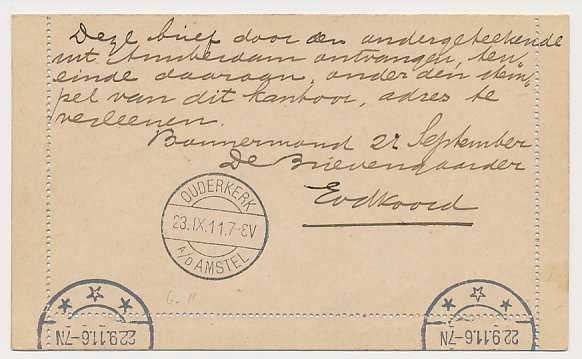 Deze brief door den ondergeteekende
uit Amsterdam ontvangen, ten
einde daaraan, onder den stem„
pel van dit kantoor, adres te
verleenen.
Bonnermond 22 September
De Brievengaarder
OUDERKERK
23.IX.11.7-8V
A/D AMSTEL
6. 11
22.9.11.6-7N
22.9.11.6-7N